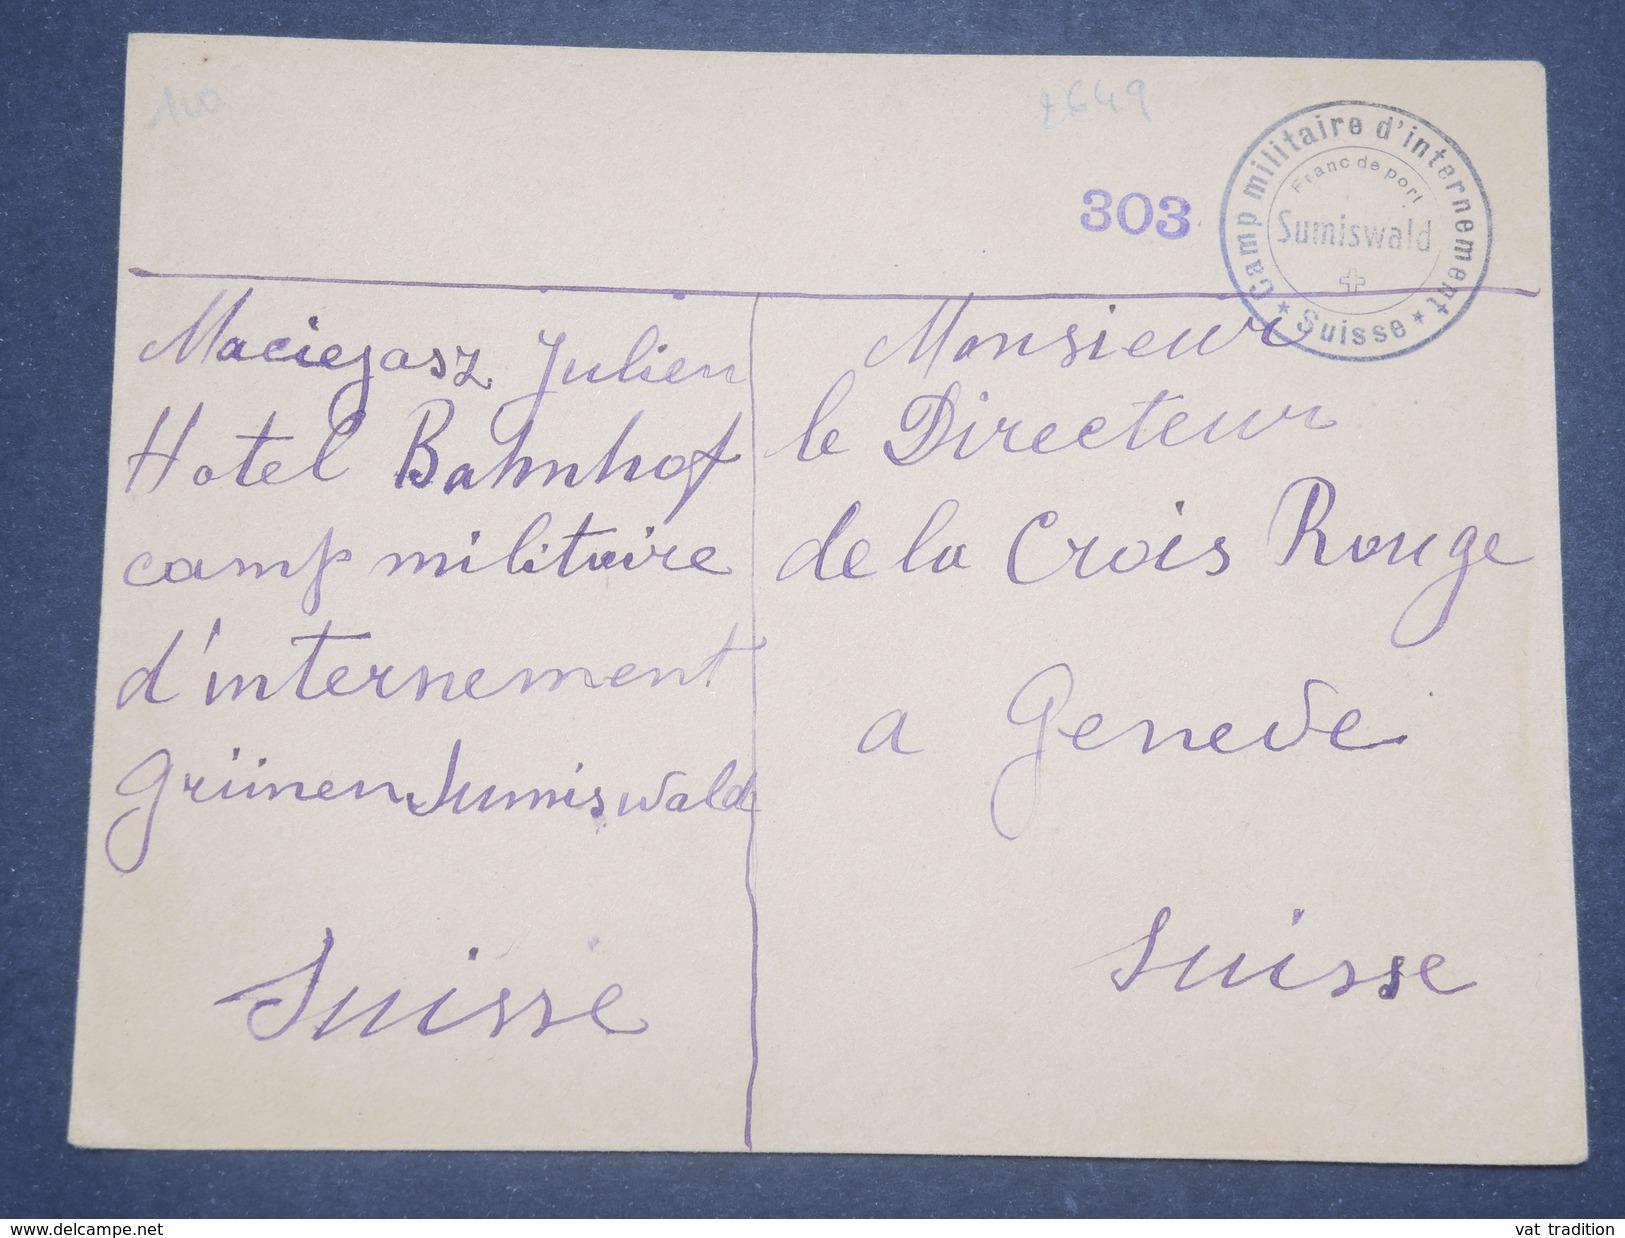 100
2649
303
Camp militaire d'internement
Franc de port
Sumiswald
★ Suisse ★
Maciejasz Julien
Hotel Bahnhof
camp militaire
d'internement
Grünen Sumiswald
Suisse
Monsieur
le Directeur
de la Crois Rouge
a Geneve
Suisse
www.delcampe.net
vat tradition